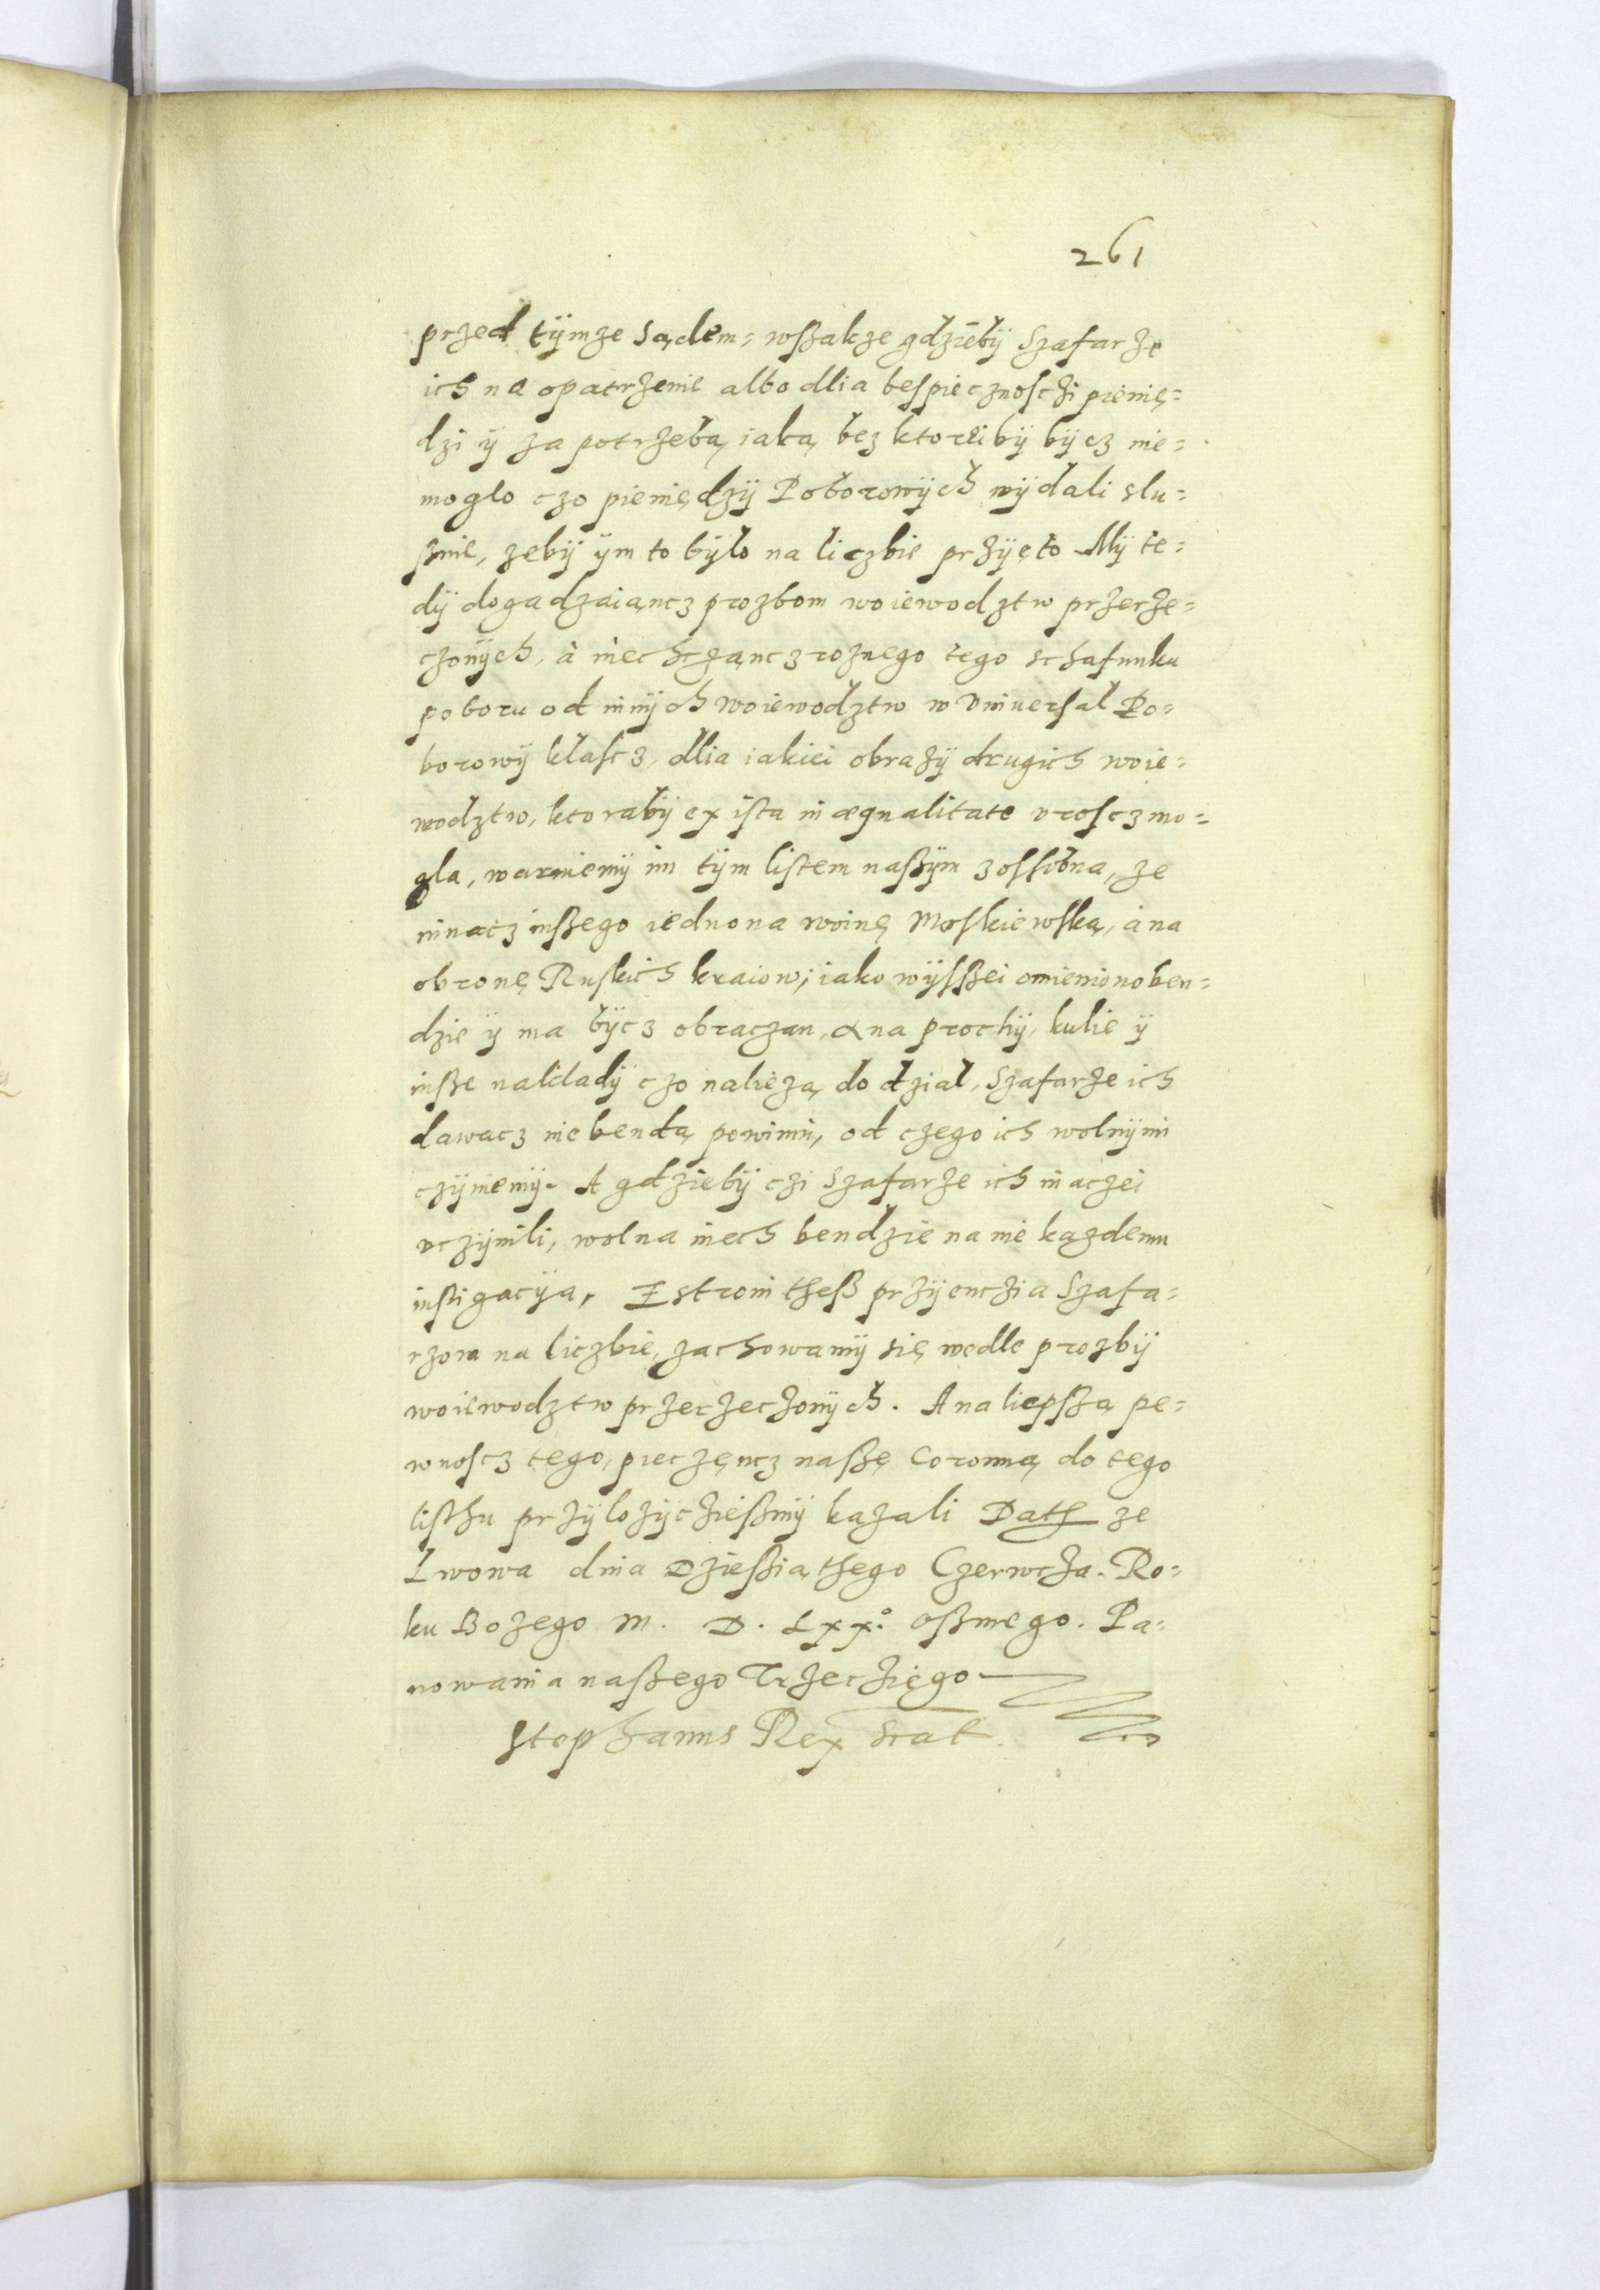 261
przed tÿmze Sądem= wßakze gdziebÿ Szafarze
ich na opatrzenie albo dlia bespiecznosczi pienię=
dzi ÿ za potrzebą iaką bez ktorei bÿ bÿcz nie=
moglo czo pieniędzÿ Poborowÿch wÿdali slu=
sznie, zebÿ ÿm to bÿlo na liczbie przÿęto Mÿ te=
dÿ dogadzaiąncz prozbom woiewodztw przerze=
czonÿch, à niechcząncz roznego tego schafunku
poboru od innÿch woiewodztw w Vniuersal Po=
borowÿ klascz, dlia iakiei obrazÿ drugich woie=
wodztw, ktorabÿ ex ista inæqualitate vroscz mo=
gla, warniemÿ im tÿm listem naßÿm zossobna, ze
ninacz inßego iedno na woinę Moskiewską, à na
obronę Ruskich kraiow, iako wÿsßei omieniono ben=
dzie ÿ ma bÿcz obraczan, à na prochÿ, kulie ÿ
inße nakladÿ czo należą do dzial, Szafarze ich
dawacz nie bendą powinni, od czego ich wolnÿmi
czÿniemÿ. A gdziebÿ czi Szafarze ich inaczei
vczÿnili, wolna niech bendzie na nie każdemu
instigacÿa, Z stroni theß przÿenczia Szafa=
rzow na liczbie, zachowamÿ się wedle prozbÿ
woiewodztw przerzeczonÿch. A na liepszą pe=
wnoscz tego, pieczęncz naßę Coronną do tego
listhu przÿlozÿcziesmÿ kazali Dath ze
Lwowa dnia Dziesiąthego Czerwcza. Ro=
ku Bozego M. D. Lxx.° osmego. Pa=
nowania naßego Trzecziego
Stephanus Rex srat.